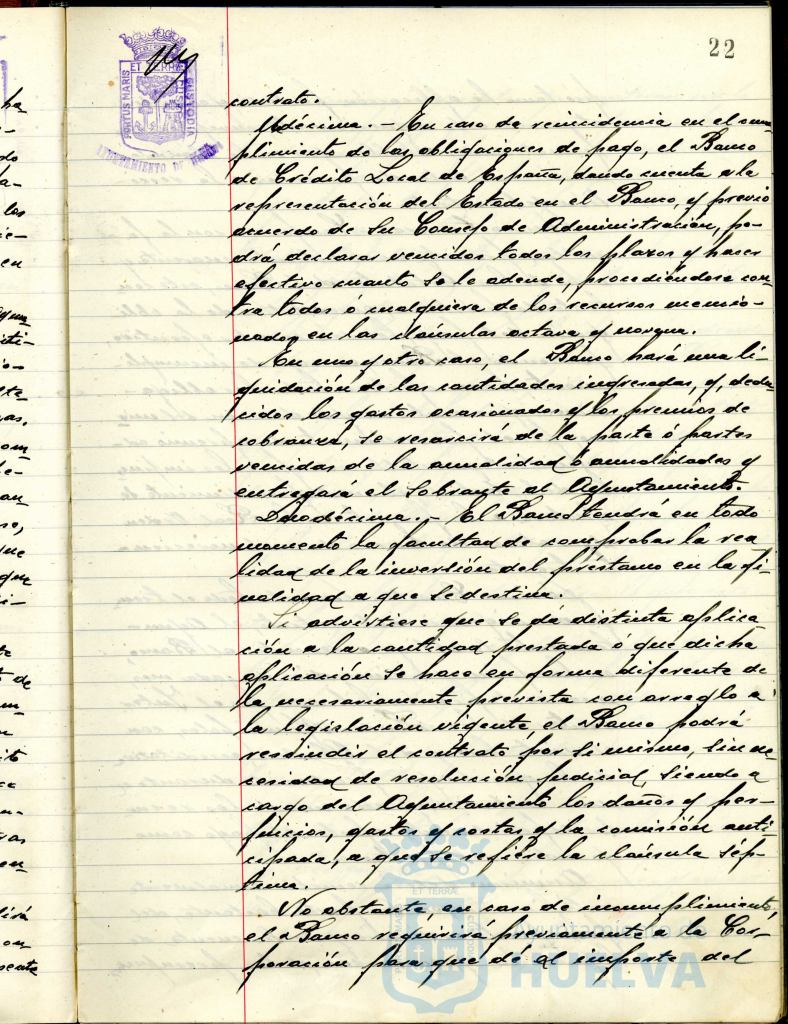 22
PORTUS MARIS ET TERRÆ CUSTODIA
AYUNTAMIENTO DE HUELVA
contrato.
Undécima.- En caso de reincidencia en el incum
plimiento de las obligaciones de pago, el Banco
de Crédito Local de España, dando cuenta a la
representación del Estado en el Banco, y previo
acuerdo de su Consejo de Administración, po-
drá declarar vencidos todos los plazos y hacer
efectivo cuanto se le adeude, procediéndose con-
tra todos ó cualquiera de los recursos mencio-
nados en las cláusulas octava y novena.
En uno y otro caso, el Banco hará una li-
quidación de las cantidades ingresadas, y, dedu-
cidos los gastos ocasionados y los premios de
cobranza, se resarcirá de la parte ó partes
vencidas de la anualidad ó anualidades y
entregará el sobrante al Ayuntamiento.
Duodécima.- El Banco tendrá en todo
momento la facultad de comprobar la rea
lidad de la inversión del préstamo en la fi-
nalidad a que se destina.
Si advirtiese que se dá distinta aplica
ción a la cantidad prestada ó que dicha
aplicación se hace en forma diferente de
la necesariamente prevista con arreglo a
la legislación vigente, el Banco podrá
rescindir el contrato por si mismo, sin ne
cesidad de resolución judicial, siendo a
cargo del Ayuntamiento los daños y per-
juicios, gastos y costas y la comisión anti
cipada, a que se refiere la cláusula sép-
tima.
No obstante, en caso de incumplimiento,
el Banco requerirá previamente a la Cor-
poración para que dé al importe del
HUELVA